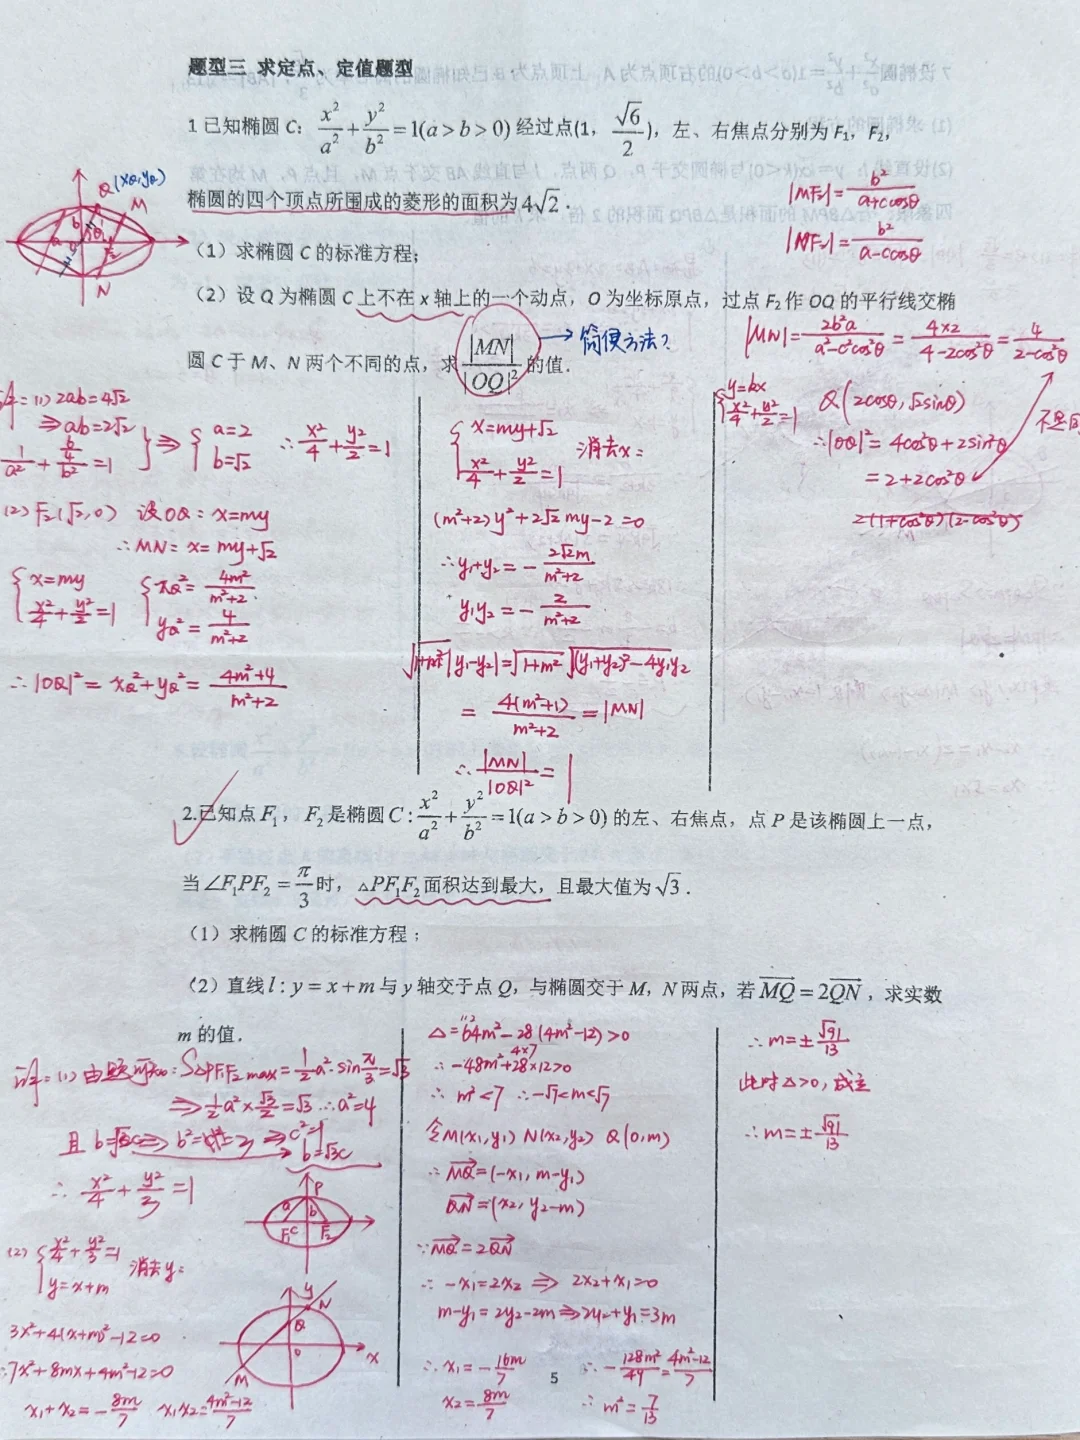 题型三 求定点、定值题型
1 已知椭圆 C: x²/a² + y²/b² = 1(a > b > 0) 经过点(1, √6/2), 左、右焦点分别为 F₁, F₂,
椭圆的四个顶点所围成的菱形的面积为 4√2.
(1) 求椭圆 C 的标准方程;
(2) 设 Q 为椭圆 C 上不在 x 轴上的一个动点, O 为坐标原点, 过点 F₂ 作 OQ 的平行线交椭
圆 C 于 M、N 两个不同的点, 求 |MN|/|OQ|² 的值.
→ 简便方法?
Q (xQ, yQ)
M
N
a
b
|MF₂| = b²/(a+c cosθ)
|NF₂| = b²/(a-c cosθ)
|MN| = 2b²a/(a²-c²cos²θ) = 4×2/(4-2cos²θ) = 4/(2-cos²θ)
解: (1) 2ab = 4√2
⇒ ab = 2√2
1/a² + (6/4)/b² = 1
⇒ { a = 2
b = √2
∴ x²/4 + y²/2 = 1
(2) F₂(√2, 0) 设 OQ: x = my
∴ MN: x = my + √2
{ x = my
x²/4 + y²/2 = 1
{ xQ² = 4m²/(m²+2)
yQ² = 4/(m²+2)
∴ |OQ|² = xQ² + yQ² = (4m²+4)/(m²+2)
{ x = my + √2
x²/4 + y²/2 = 1
消去 x:
(m²+2)y² + 2√2my - 2 = 0
∴ y₁+y₂ = - 2√2m/(m²+2)
y₁y₂ = - 2/(m²+2)
√(1+m²) |y₁-y₂| = √(1+m²) √((y₁+y₂)²-4y₁y₂)
= 4(m²+1)/(m²+2) = |MN|
∴ |MN|/|OQ|² = 1
{ y = kx
x²/4 + y²/2 = 1
Q(2cosθ, √2sinθ)
∴ |OQ|² = 4cos²θ + 2sin²θ
= 2 + 2cos²θ
2(1+cos²θ)(2-cos²θ)
不是同
2.已知点 F₁, F₂ 是椭圆 C: x²/a² + y²/b² = 1(a > b > 0) 的左、右焦点, 点 P 是该椭圆上一点,
当 ∠F₁PF₂ = π/3 时, △PF₁F₂ 面积达到最大, 且最大值为 √3.
(1) 求椭圆 C 的标准方程;
(2) 直线 l: y = x + m 与 y 轴交于点 Q, 与椭圆交于 M, N 两点, 若 MQ = 2QN, 求实数
m 的值.
解: (1) 由题可知: S△PF₁F₂ max = 1/2 a²·sin π/3 = √3
⇒ 1/2 a² × √3/2 = √3 ∴ a² = 4
⇒ c² = 1
b = √3c
∴ x²/4 + y²/3 = 1
P
a
b
c
F₁
F₂
(2) { x²/4 + y²/3 = 1
y = x + m
消去 y:
3x² + 4(x+m)² - 12 = 0
∴ 7x² + 8mx + 4m² - 12 = 0
x₁ + x₂ = - 8m/7 x₁x₂ = (4m²-12)/7
y
N
Q
o
x
M
△ = 64m² - 28(4m²-12) > 0
∴ -48m² + 28×12 > 0
∴ m² < 7 ∴ -√7 < m < √7
令 M(x₁, y₁) N(x₂, y₂) Q(0, m)
∴ MQ = (-x₁, m-y₁)
QN = (x₂, y₂-m)
∵ MQ = 2QN
∴ -x₁ = 2x₂ ⇒ 2x₂ + x₁ = 0
m-y₁ = 2y₂-2m ⇒ 2y₂+y₁ = 3m
∴ x₁ = - 16m/7
x₂ = 8m/7
∴ - 128m²/49 = (4m²-12)/7
∴ m² = 7/13
∴ m = ± √91/13
此时 △ > 0, 成立
∴ m = ± √91/13
5